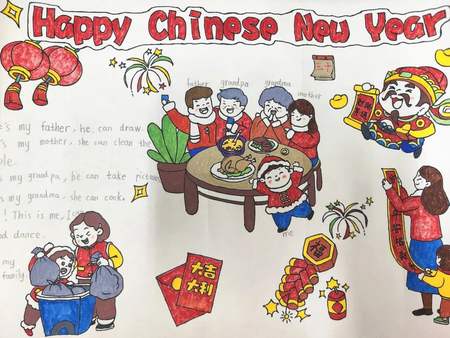 Happy Chinese New Year
father grandpa grandma mother
's my father, he can draw.
's my mother, she can clean the
s my grandpa, he can take
s my grandma, she can cook.
! This is me, I
dance.
my
family.
me
福
大吉
大利